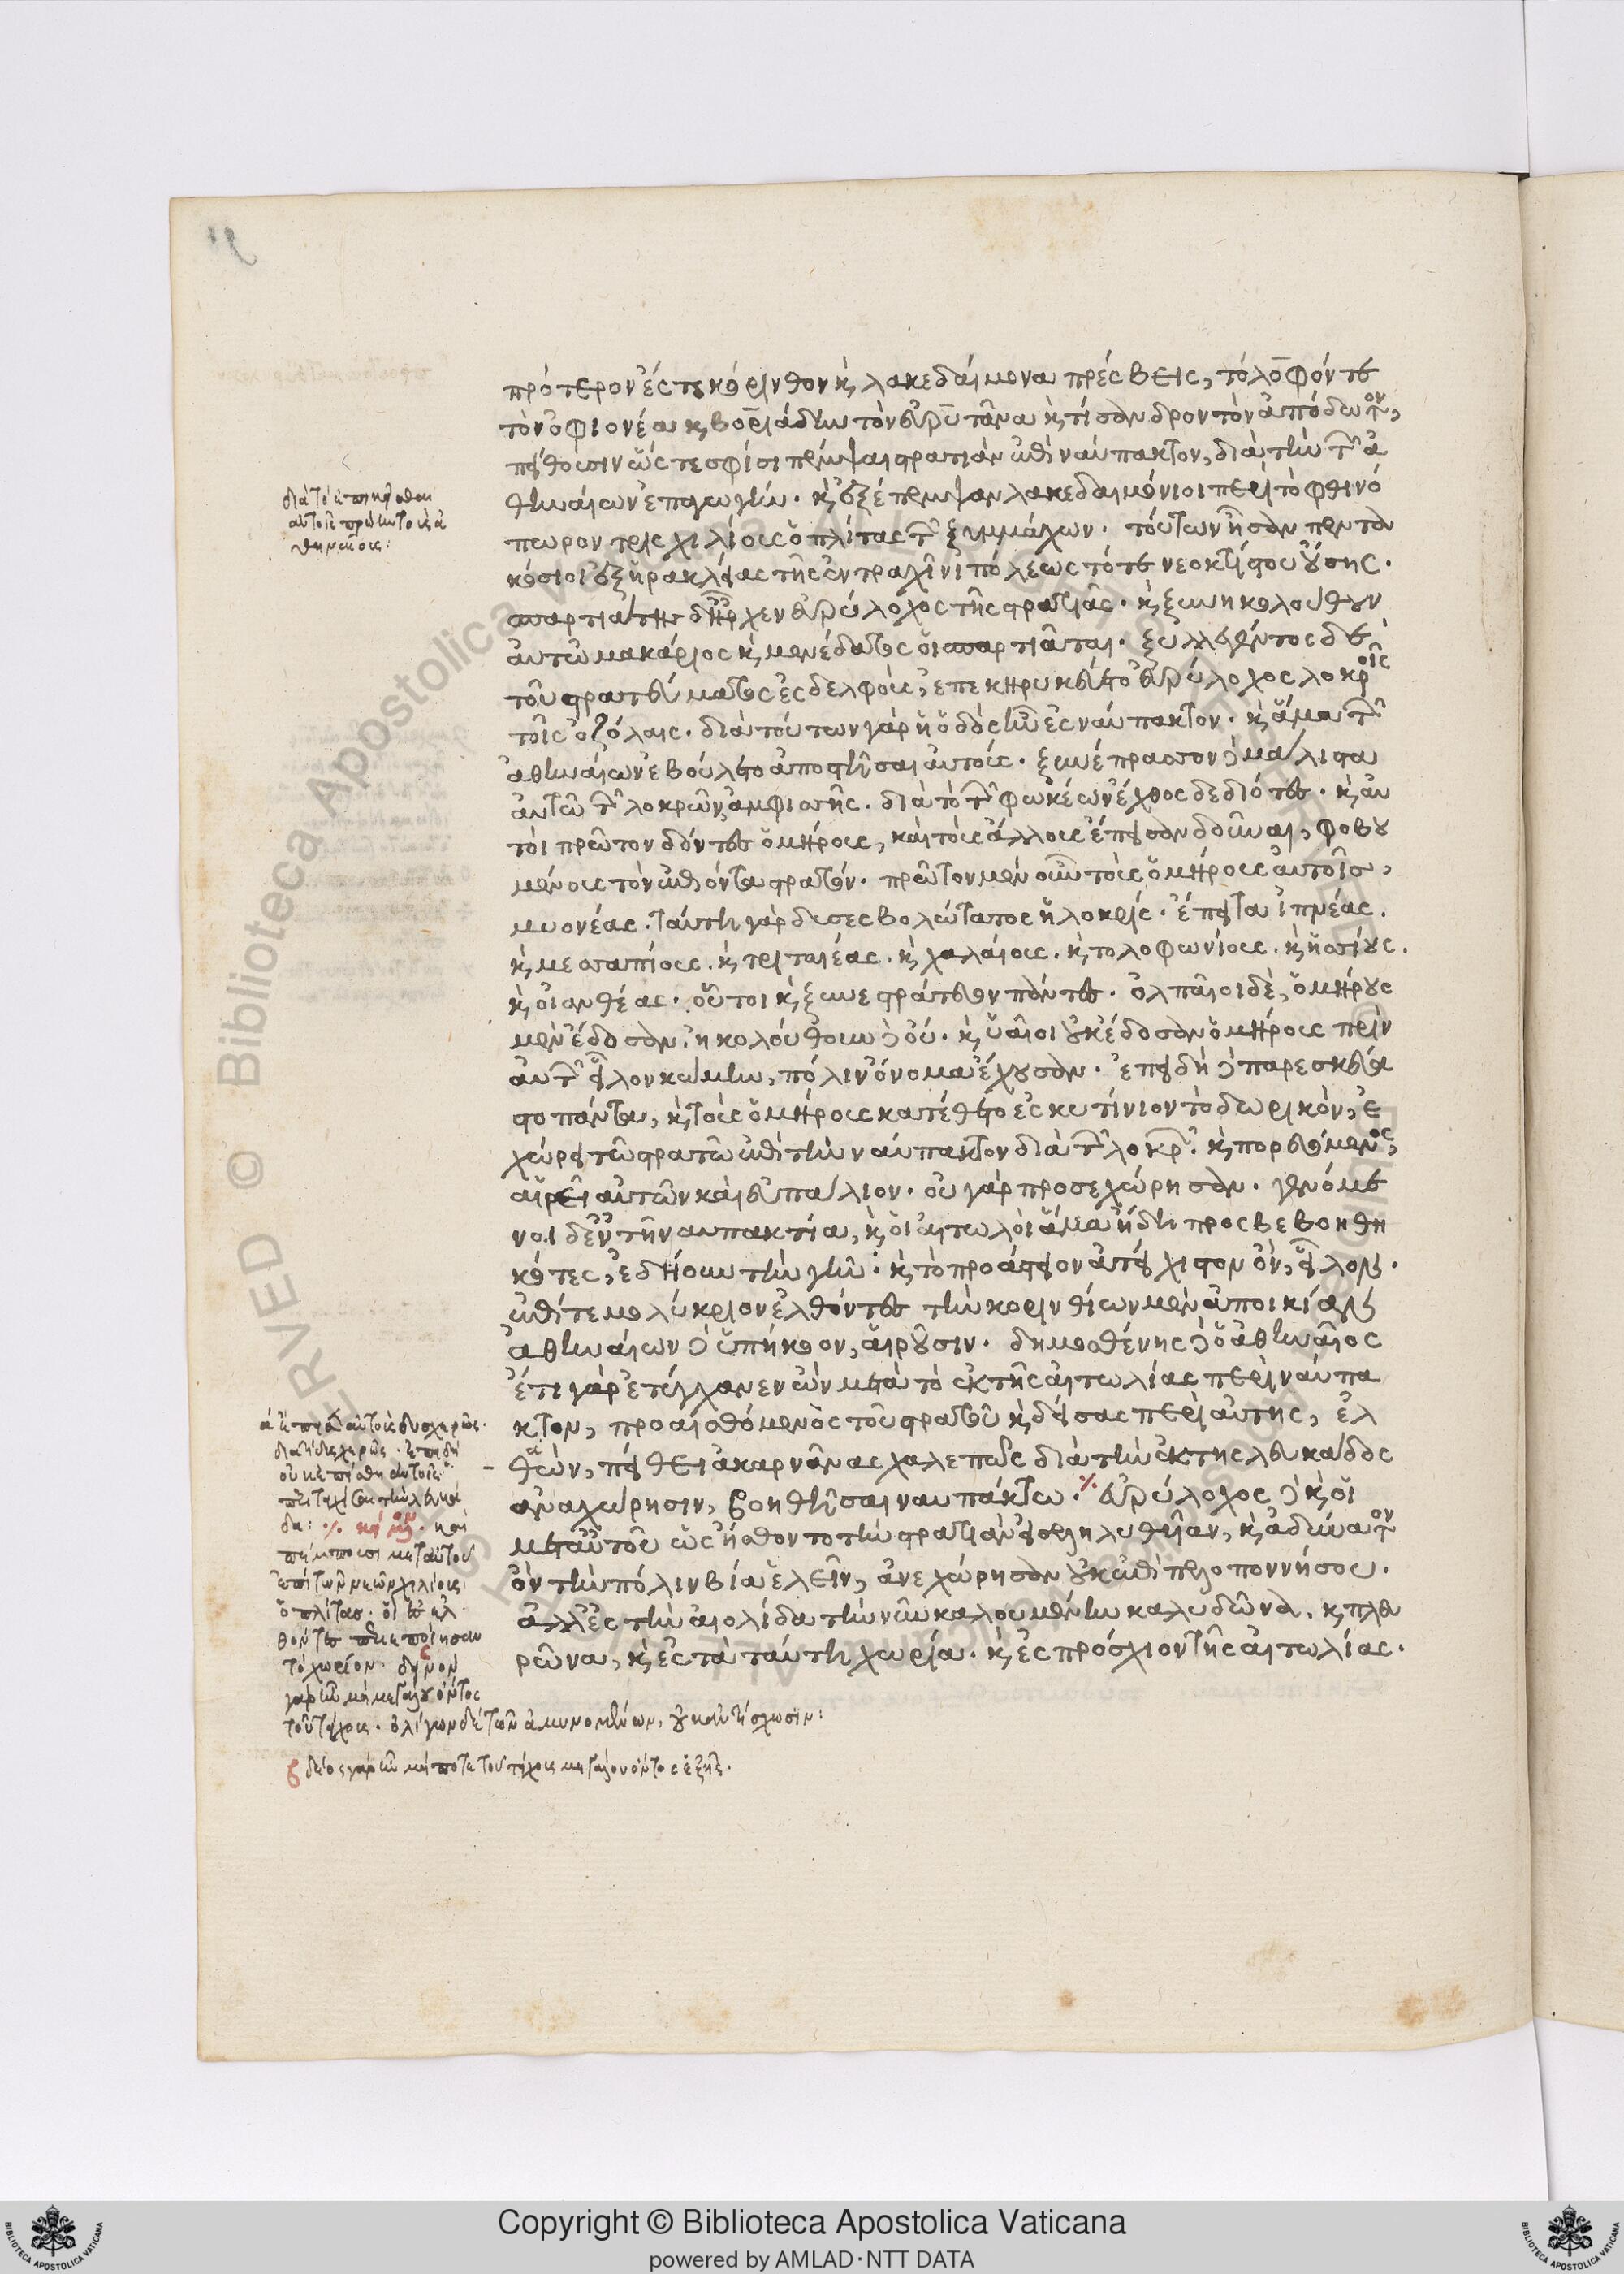 πρότερον ἔς τε κόρινθον καὶ λακεδαίμονα πρέσβεις, τόλοφόν τε
τὸν ὀφιονέα καὶ βοριάδην τὸν εὐρυτᾶνα καὶ τίσανδρον τὸν ἀπόδωτον,
πείθουσιν ὥστε σφίσι πέμψαι στρατιὰν ἐπὶ ναύπακτον, διὰ τὴν τῶν ἀ
θηναίων ἐπαγωγήν. καὶ ἐξέπεμψαν λακεδαιμόνιοι περὶ τὸ φθινό
πωρον τρισχιλίους ὁπλίτας τῶν ξυμμάχων. τούτων ἦσαν πεντα
κόσιοι ἐξ ἡρακλείας τῆς ἐν τραχῖνι πόλεως τότε νεοκτίστου οὔσης.
σπαρτιάτης δ' ἦρχεν εὐρύλοχος τῆς στρατιᾶς. καὶ ξυνηκολούθουν
αὐτῷ μακάριος καὶ μενέδατος οἱ σπαρτιᾶται. ξυλλεγέντος δὲ
τοῦ στρατεύματος ἐς δελφούς, ἐπεκηρυκεύετο εὐρύλοχος λοκροῖς
τοῖς ὀζόλαις. διὰ τούτων γὰρ ἡ ὁδὸς ἦν ἐς ναύπακτον. καὶ ἅμα τῶν
ἀθηναίων ἐβούλετο ἀποστῆσαι αὐτούς. ξυνέπρασσον δὲ μάλιστα
αὐτῷ τῶν λοκρῶν ἀμφισσῆς. διὰ τὸ τῶν φωκέων ἔχθος δεδιότες. καὶ αὐ
τοὶ πρῶτον δόντες ὁμήρους, καὶ τοὺς ἄλλους ἔπεισαν δοῦναι, φοβου
μένους τὸν ἐπιόντα στρατόν. πρῶτον μὲν οὖν τοὺς ὁμήρους αὐτοῖς,
μυονέας. ταύτῃ γὰρ δυσεσβολώτατος ἡ λοκρίς. ἔπειτα ἰπνέας.
καὶ μεσσαπίους. καὶ τριταιέας. καὶ χαλαίους. καὶ τολοφωνίους. καὶ ἡσίους.
καὶ οἰανθέας. οὗτοι καὶ ξυνεστράτευον πάντες. ὀλπαῖοι δὲ, ὁμήρους
μὲν ἔδοσαν. ἠκολούθουν δὲ οὔ. καὶ ὑαῖοι οὐκ ἔδοσαν ὁμήρους πρὶν
αὐτῶν εἷλον κώμην, πόλιν ὄνομα ἔχουσαν. ἐπειδὴ δὲ παρεσκεύα
στο πάντα, καὶ τοὺς ὁμήρους κατέθετο ἐς κυτίνιον τὸ δωρικὸν, ἐ
χώρει τῷ στρατῷ ἐπὶ τὴν ναύπακτον διὰ τῶν λοκρῶν. καὶ πορευόμενος,
αἱρεῖ αὐτῶν καὶ εὐπάλιον. οὐ γὰρ προσεχώρησαν. γενόμε
νοι δ' ἐν τῇ ναυπακτίᾳ, καὶ οἱ αἰτωλοὶ ἅμα ἤδη προσβεβοηθη
κότες, ἐδῄουν τὴν γῆν. καὶ τὸ προάστειον ἀτείχιστον ὂν, εἷλον.
ἐπί τε μολύκριον ἐλθόντες τὴν κορινθίων μὲν ἀποικίαν
ἀθηναίων δὲ ὑπήκοον, αἱροῦσιν. δημοσθένης δὲ ὁ ἀθηναῖος
ἔτι γὰρ ἐτύγχανεν ὢν μετὰ τὸ ἐκ τῆς αἰτωλίας περὶ ναύπα
κτον, προαισθόμενος τοῦ στρατοῦ καὶ δείσας περὶ αὐτῆς, ἐλ
θὼν, πείθει ἀκαρνᾶνας χαλεπῶς διὰ τὴν ἐκ τῆς λευκάδος
ἀναχώρησιν, βοηθῆσαι ναυπάκτῳ. εὐρύλοχος δὲ καὶ οἱ
μετ' αὐτοῦ ὡς ᾔσθοντο τὴν στρατιὰν ἐσεληλυθυῖαν, καὶ ἀδύνατον
ὂν τὴν πόλιν βίᾳ ἑλεῖν, ἀνεχώρησαν οὐκ ἐπὶ πελοποννήσου.
ἀλλ' ἐς τὴν αἰολίδα τὴν νῦν καλουμένην καλυδῶνα. καὶ πλευ
ρῶνα, καὶ ἐς τὰ ταύτῃ χωρία. καὶ ἐς πρόσχιον τῆς αἰτωλίας.
διὰ τὸ
αὐτοῖς πρώην τοὺς ἀ
θηναίους:
αὐτοὺς δυσχερῶς.
διατί δυσχερῶς. ἐπειδὴ
οὐκ ἐπείσθη αὐτοῖς
περιτειχίσαι τὴν λευκά
δα: καὶ
πέμπουσι μετ' αὐτοῦ
ἐπὶ τῶν νεῶν χιλίους
ὁπλίτας. οἳ ἐσελ
θόντες περιεποίησαν
τὸ χωρίον. δεινὸν
γὰρ ἦν μὴ μεγάλου ὄντος
τοῦ τείχους. ὀλίγων δὲ τῶν ἀμυνομένων, οὐκ ἀντίσχωσιν:
δέος γὰρ ἦν μή ποτε τοῦ τείχους μεγάλου ὄντος ἑξῆς.
Copyright © Biblioteca Apostolica Vaticana
powered by AMLAD·NTT DATA